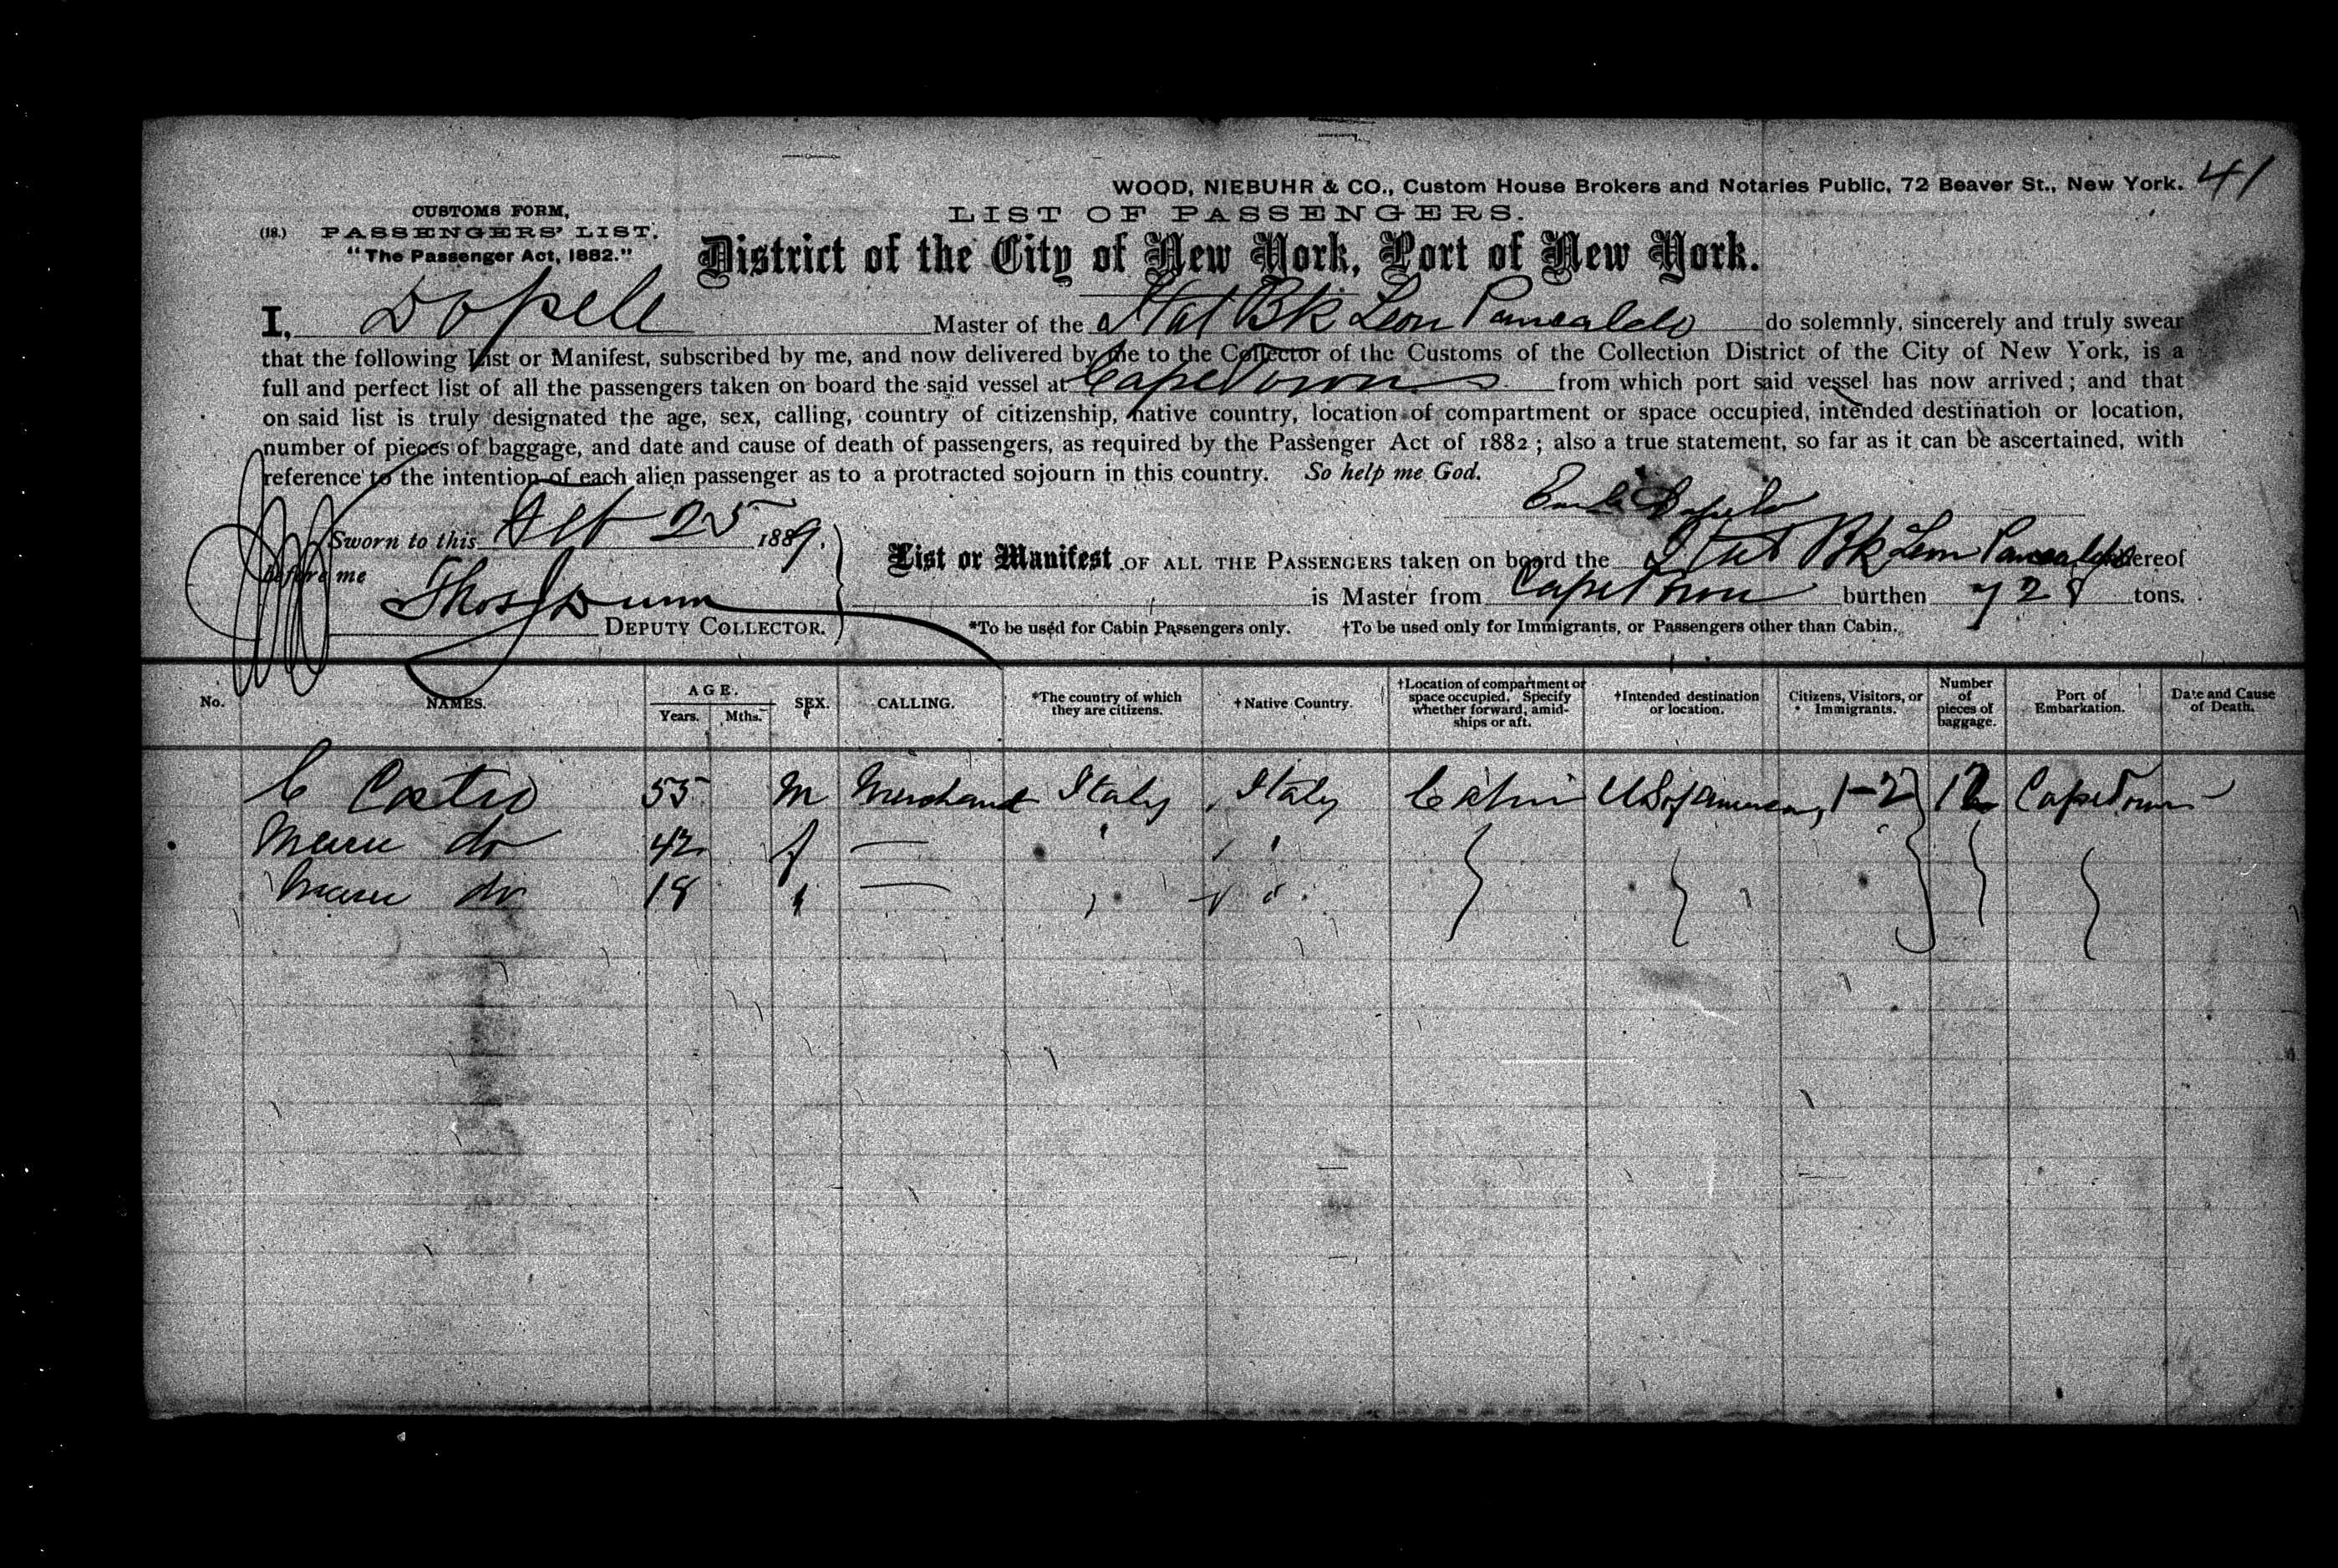 WOOD, NIEBUHR & CO., Custom House Brokers and Notaries Public, 72 Beaver St., New York. 41
CUSTOMS FORM,
(18.) PASSENGERS' LIST.
"The Passenger Act, 1882."
LIST OF PASSENGERS.
District of the City of New York, Port of New York.
I, Dopele Master of the Ital Bk Leon Pancaldo do solemnly, sincerely and truly swear
that the following List or Manifest, subscribed by me, and now delivered by me to the Collector of the Customs of the Collection District of the City of New York, is a
full and perfect list of all the passengers taken on board the said vessel at Cape Town from which port said vessel has now arrived; and that
on said list is truly designated the age, sex, calling, country of citizenship, native country, location of compartment or space occupied, intended destination or location,
number of pieces of baggage, and date and cause of death of passengers, as required by the Passenger Act of 1882; also a true statement, so far as it can be ascertained, with
reference to the intention of each alien passenger as to a protracted sojourn in this country. So help me God.
Sworn to this Feb 25 1889.
before me
Thos Dunn
DEPUTY COLLECTOR.
List or Manifest OF ALL THE PASSENGERS taken on board the Ital Bk Leon Pancaldo whereof
is Master from Cape Town burthen 728 tons.
*To be used for Cabin Passengers only. †To be used only for Immigrants, or Passengers other than Cabin.
No. NAMES. AGE. Years. Mths. SEX. CALLING. *The country of which they are citizens. †Native Country. †Location of compartment or space occupied. Specify whether forward, amidships or aft. †Intended destination or location. Citizens, Visitors, or Immigrants. Number of pieces of baggage. Port of Embarkation. Date and Cause of Death.
C Castro 55 M Merchant Italy Italy Cabin US of America, 1-2 12 Cape Town
do 42 f —
Marie do 18 —